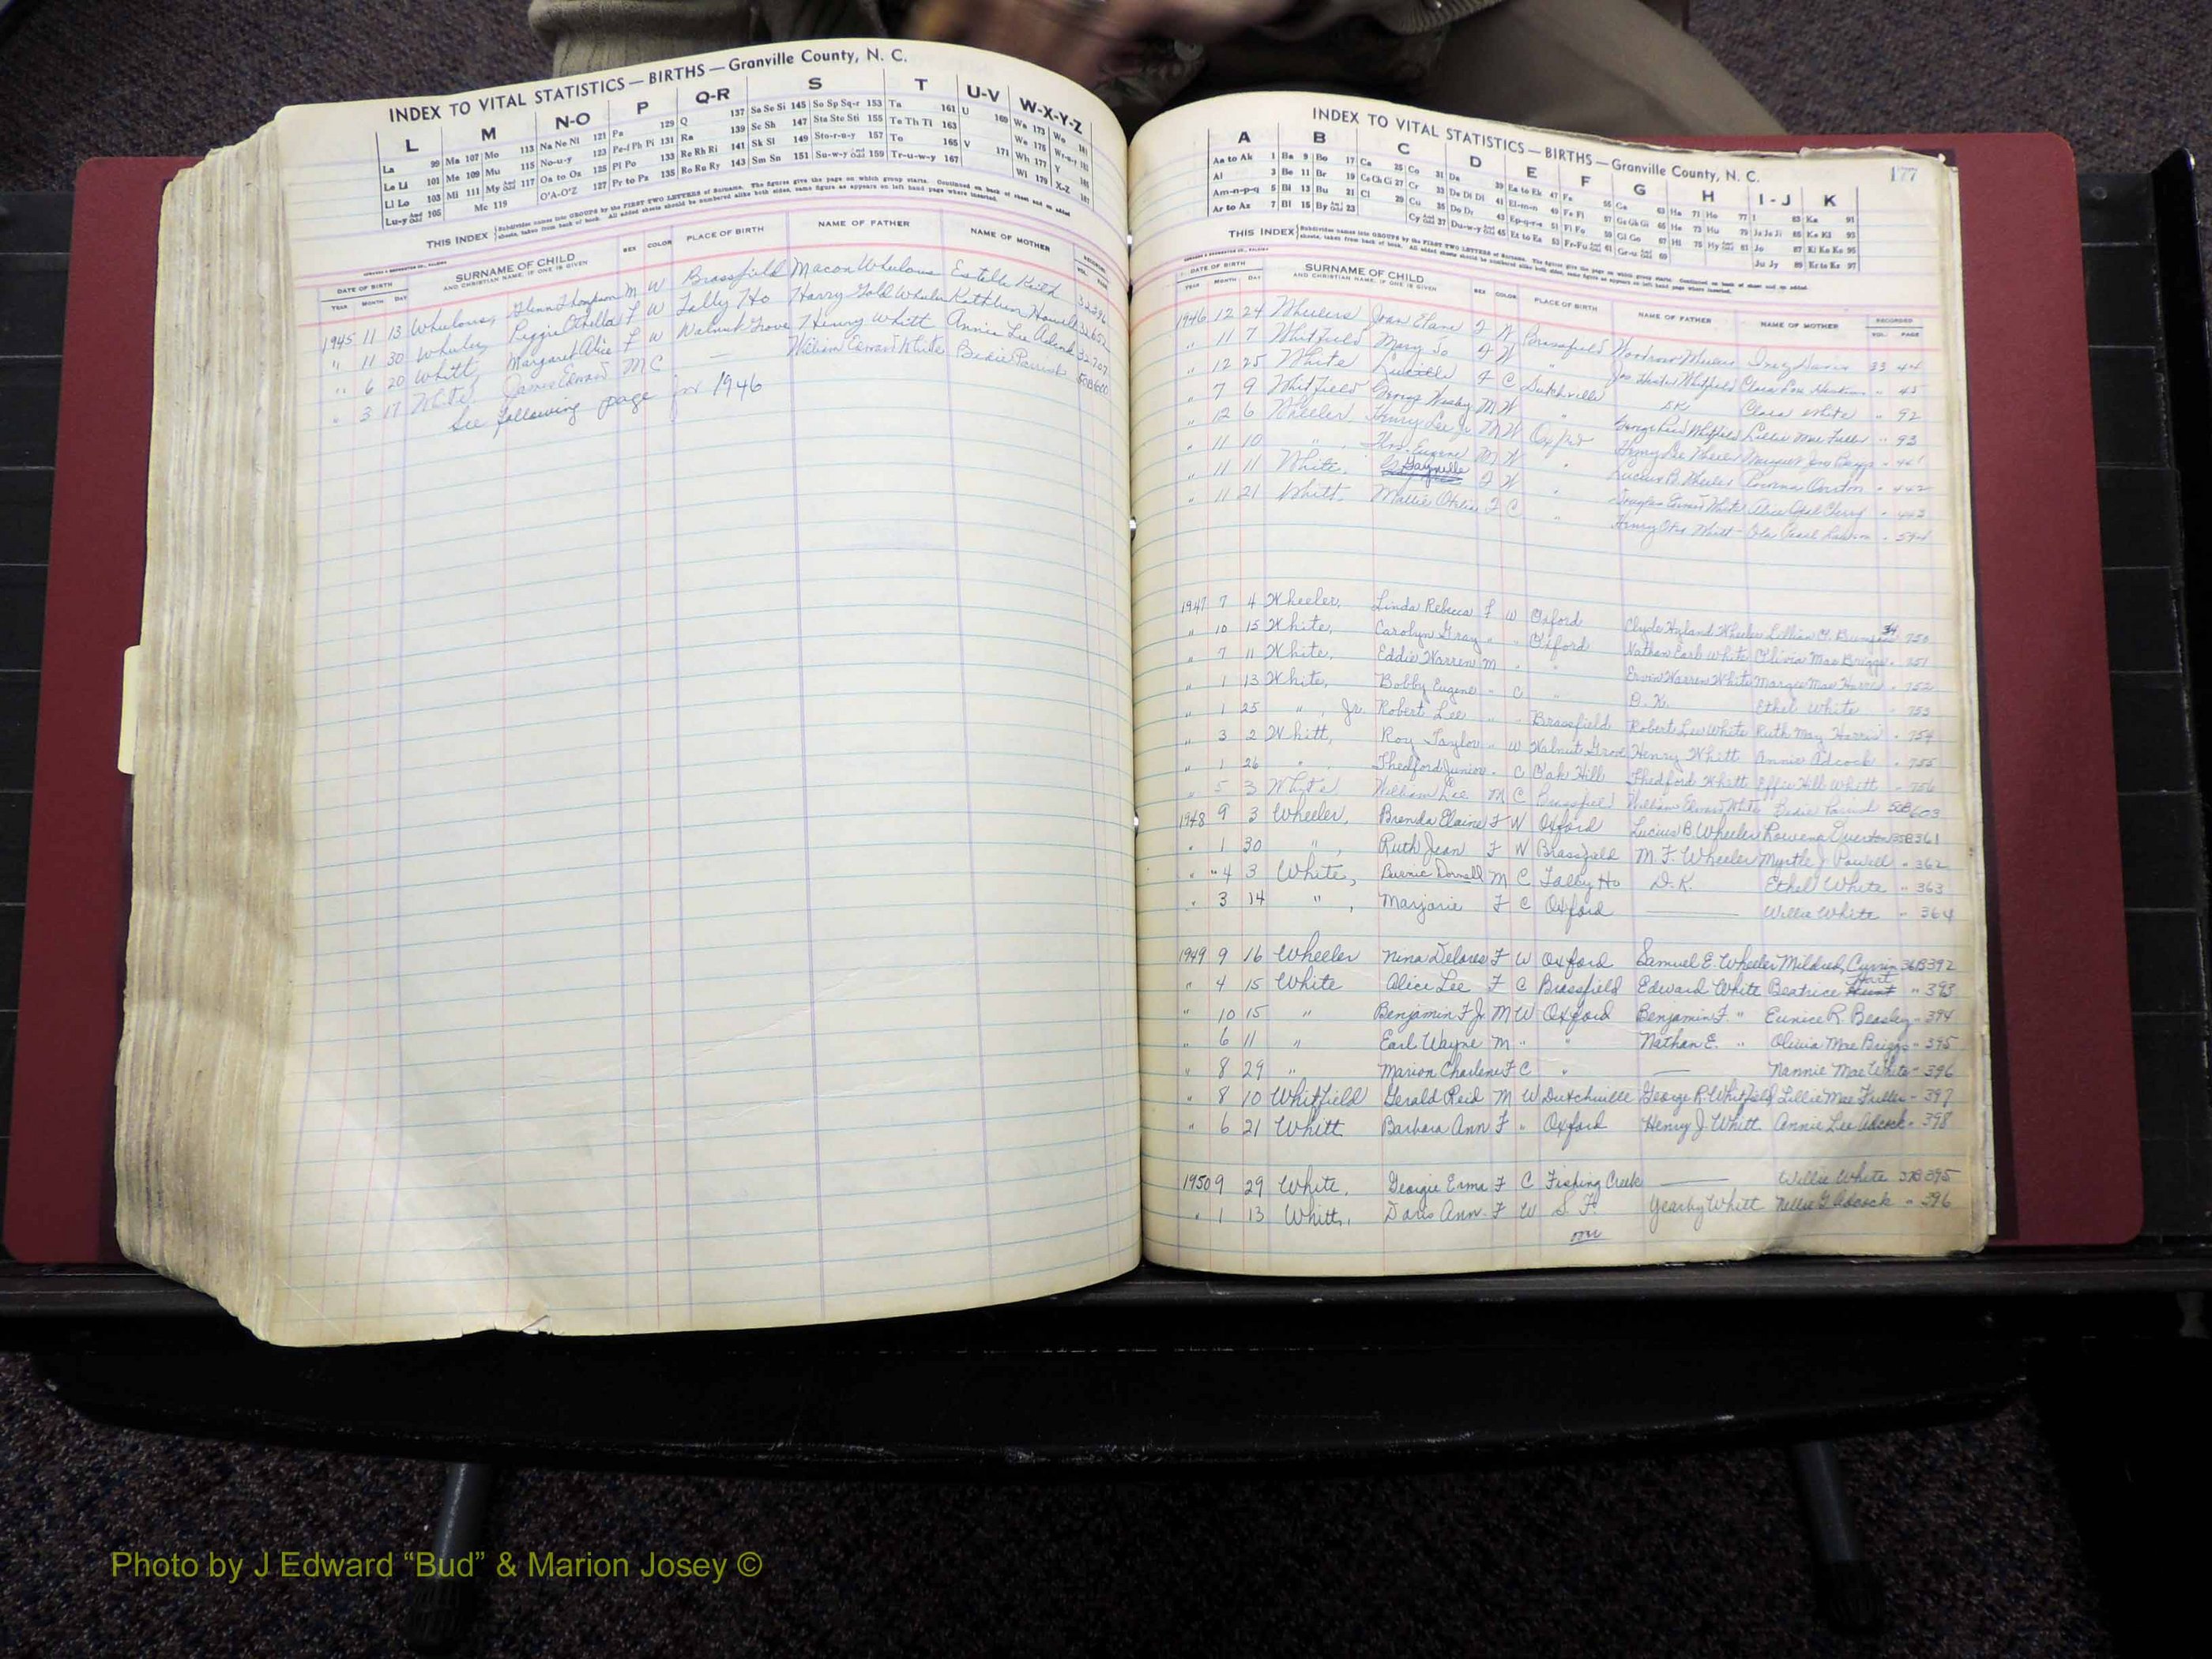 INDEX TO VITAL STATISTICS — BIRTHS — Granville County, N. C.
L M N-O P Q-R S T U-V W-X-Y-Z
La 99 Ma 107 Mo 113 Na Ne Ni 121 Pa 129 Q 137 Sa Se Si 145 So Sp Sq-r 153 Ta 161 U 169 Wa 173 Wo 181
Le Li 101 Me 109 Mu 115 No-u-y 123 Pe-f Ph Pi 131 Ra 139 Sc Sh 147 Sta Ste Sti 155 Te Th Ti 163 We 175
Ll Lo 103 Mi 111 My 117 Oa to Oz 125 Pl Po 133 Re Rh Ri 141 Sk Sl 149 Sto-r-u-y 157 To 165 V 171 Wh 177 Y
Lu-y 105 Mc 119 O'A-O'Z 127 Pr to Pz 135 Ro Ru Ry 143 Sm Sn 151 Su-w-y 159 Tr-u-w-y 167 Wi 179 X-Z
THIS INDEX Subdivides names into GROUPS by the FIRST TWO LETTERS of Surname. The figures give the page on which group starts. Continued on back of sheet and on added
sheets, taken from back of book. All added sheets should be numbered alike both sides, same figure as appears on left hand page where inserted.
DATE OF BIRTH SURNAME OF CHILD SEX COLOR PLACE OF BIRTH NAME OF FATHER NAME OF MOTHER RECORDED
YEAR MONTH DAY AND CHRISTIAN NAME, IF ONE IS GIVEN VOL. PAGE
1945 11 13 Wheelous, Glenn Thompson M W Brassfield Macon Wheelous Estelle 32396
" 11 30 Wheeler, Peggie Othella F W Tally Ho Harry Gold Wheeler Kathleen Howell
" 6 20 Whitt, Margaret Alice F W Walnut Grove Henry Whitt Annie Lee Adcock 32707
" 3 17 White, James Edward M C — William Edward White Bedie Parrish 50B600
See following page for 1946
INDEX TO VITAL STATISTICS — BIRTHS — Granville County, N. C.
177
A B C D E F G H I - J K
Aa to Ak 1 Ba 9 Bo 17 Ca 25 Co 31 Da 39 Ea to Ek 47 Fa 55 Ga 63 Ha 71 Ho 77 I 83 Ka 91
Al 3 Be 11 Br 19 Ce Ch Ci 27 Cr 33 De Di Dl 41 El-m-n 49 Fe Fi 57 Ge Gh Gi 65 He 73 Hu 79 Ja Je Ji 85 Ke Kl 93
Am-n-p-q 5 Bi 13 Bu 21 Cl 29 Cu 35 Do Dr 43 Ep-q-r-s 51 Fl Fo 59 Gl Go 67 Hi 75 Hy 81 Jo 87 Ki Kn Ko 95
Ar to Az 7 Bl 15 By 23 Cy 37 Du-w-y 45 Et to Ez 53 Fr-Fu 61 Gr-u 69 Ju Jy 89 Kr to Kz 97
THIS INDEX Subdivides names into GROUPS by the FIRST TWO LETTERS of Surname. The figures give the page on which group starts. Continued on back of sheet and on added
sheets, taken from back of book. All added sheets should be numbered alike both sides, same figure as appears on left hand page where inserted.
DATE OF BIRTH SURNAME OF CHILD SEX COLOR PLACE OF BIRTH NAME OF FATHER NAME OF MOTHER RECORDED
YEAR MONTH DAY AND CHRISTIAN NAME, IF ONE IS GIVEN VOL. PAGE
1946 12 24 Wheelers Joan Elane F W Brassfield Woodrow Inez Davis 33 44
" 11 7 Whitfield Mary Jo F W " Whitfield Clara 45
" 12 25 White F C Dutchville DK Clara White " 92
" 7 9 Whitfield George Wesley M W " George Reid Whitfield Lillie Mae Fuller " 93
" 12 6 Wheeler, Henry Lee Jr M W Oxford Henry Lee Wheeler Margaret
" 11 10 " , Eugene M W " Lucius B. Wheeler " 442
" 11 11 White, Gaynelle F W " Douglas Edward White Alice Opal Cheny " 443
" 11 21 Whitt, Mallie F C " Henry Otis Whitt - Ola Pearl " 594
1947 7 4 Wheeler, Linda Rebecca F W Oxford Clyde Hyland Wheeler Lillian 34 750
" 10 15 White, Carolyn Gray " " Oxford Nathan Earl White Olivia Mae Briggs " 751
" 7 11 White, Eddie Warren M " " Ervin Warren White Margie Mae Harris " 752
" 1 13 White, Bobby Eugene " C " D. K. Ethel White " 753
" 1 25 " , Jr. Robert Lee " " Brassfield Robert Lee White Ruth May Harris " 754
" 3 2 Whitt, Roy Taylor " W Walnut Grove Henry Whitt Annie Adcock " 755
" 1 26 " , Thedford Junior " C Oak Hill Thedford Whitt Effie Hill Whitt " 756
" 5 3 White William Lee M C Brassfield William Edward White Bedie Parrish 50B603
1948 9 3 Wheeler, Brenda Elaine F W Oxford Lucius B Wheeler Rowena Overton 35B361
" 1 30 " , Ruth Jean F W Brassfield M. F. Wheeler Myrtle J Powell " 362
" 4 3 White, Burnic Donnell M C Tally Ho D. K. Ethel White " 363
" 3 14 " , Marjorie F C Oxford — Willie White " 364
1949 9 16 Wheeler Nina Delores F W Oxford Samuel E. Wheeler Mildred Currin 36B392
" 4 15 White Alice Lee F C Brassfield Edward White Beatrice Hunt Hart " 393
" 10 15 " Benjamin F Jr M W Oxford Benjamin F. " Eunice R. Beasley " 394
" 6 11 " Earl Wayne M " " Nathan E. " Olivia Mae Briggs " 395
" 8 29 " Marion Charlene F C " — Nannie Mae White " 396
" 8 10 Whitfield Gerald Reid M W Dutchville George R. Whitfield Lillie Mae Fuller " 397
" 6 21 Whitt Barbara Ann F " Oxford Henry J. Whitt Annie Lee Adcock " 398
1950 9 29 White, Georgie Erma F C Fishing Creek — Willie White 37B395
" 1 13 Whitt, Doris Ann F W S. F. Yearby Whitt Nellie G Adcock " 396
Photo by J Edward “Bud” & Marion Josey ©